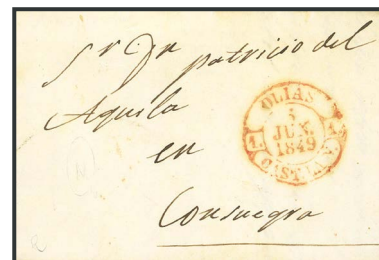 Sr Dn patricio del
Aguila
en
Consuegra
OLIAS
5
JUN.
1849
CAST. LA N.